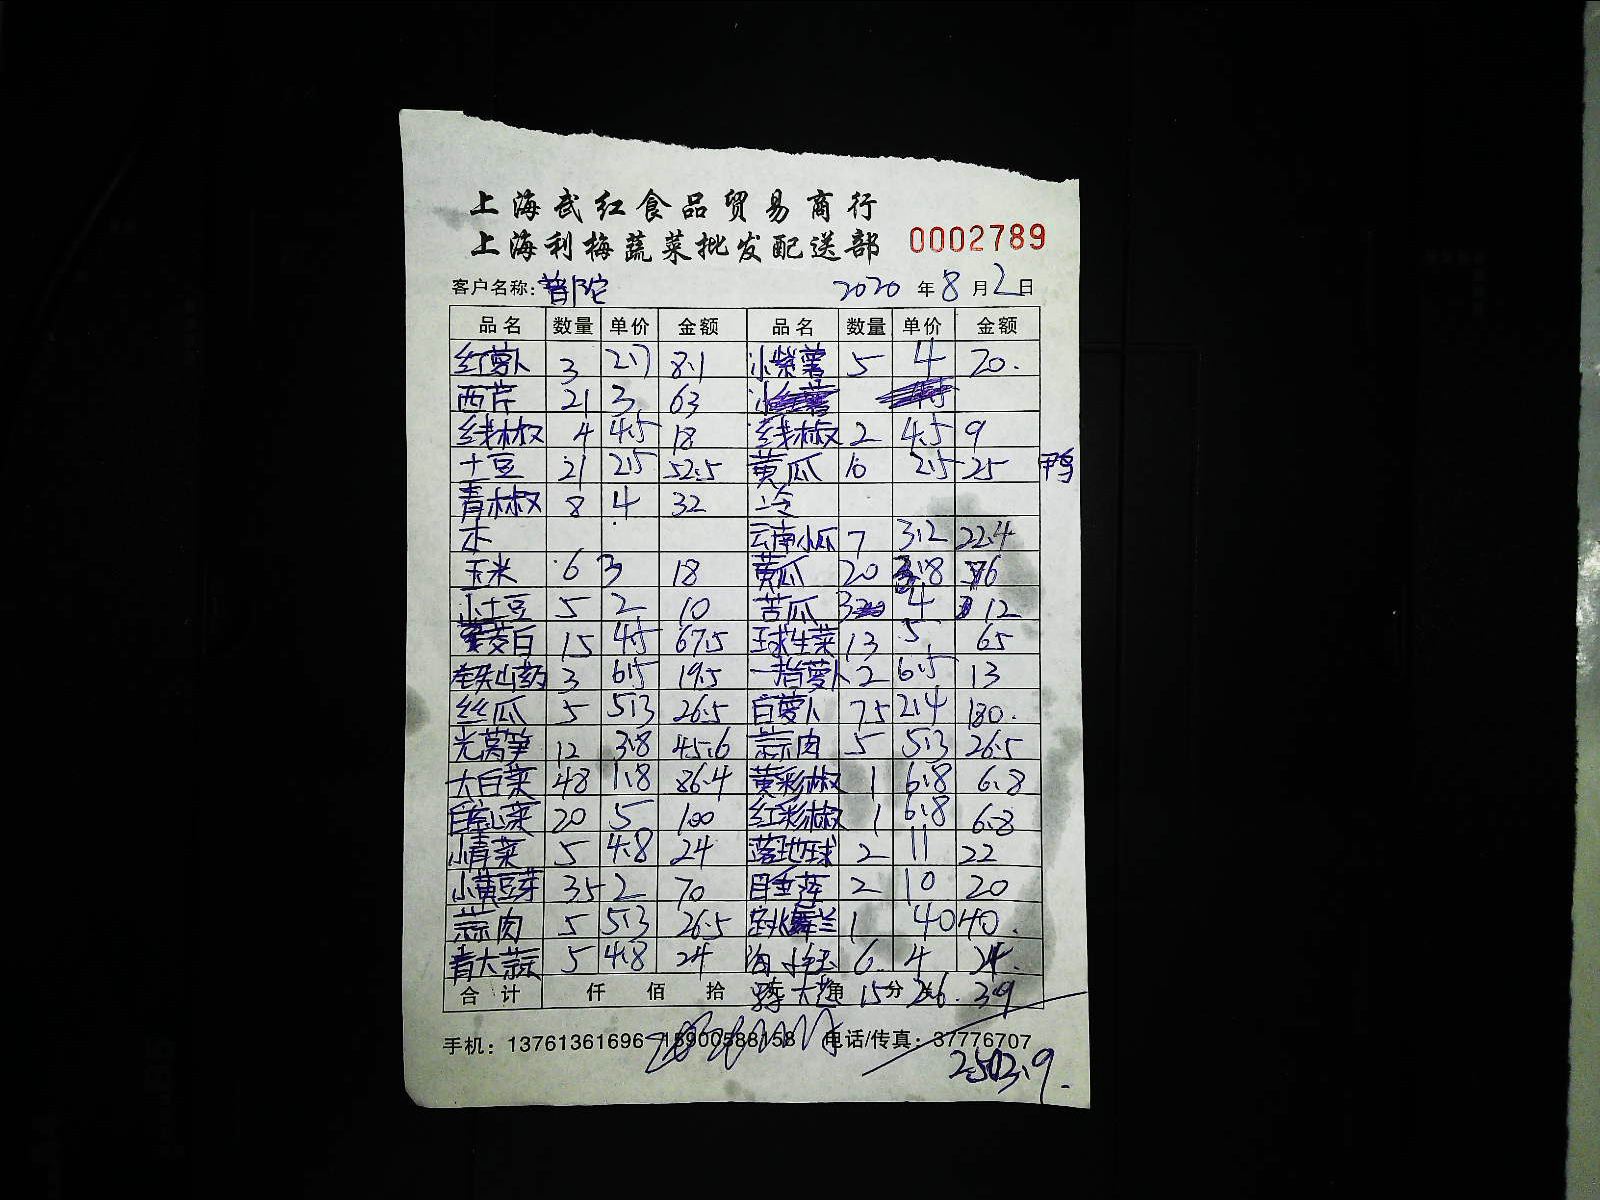 上海武红食品贸易商行
上海利梅蔬菜批发配送部 0002789
客户名称: 普陀 2020 年 8 月 2 日
品名 数量 单价 金额 品名 数量 单价 金额
红萝卜 3 2.7 8.1 小紫薯 5 4 20.
西芹 21 3 63
线椒 4 4.5 18 线椒 2 4.5 9
土豆 21 2.5 52.5 黄瓜 10 2.5 25 鸭
青椒 8 4 32 冷
本 云南小瓜 7 3.2 22.4
玉米 6 3 18 黄瓜 20 3.8 76
小土豆 5 2 10 苦瓜 3 4 12
茭白 15 4.5 67.5 球生菜 13 5 65
铁山药 3 6.5 19.5 萝卜 2 6.5 13
丝瓜 5 5.3 26.5 白萝卜 75 2.4 180.
光莴笋 12 3.8 45.6 蒜肉 5 5.3 26.5
大白菜 48 1.8 86.4 黄彩椒 1 6.8 6.8
空心菜 20 5 100 红彩椒 1 6.8 6.8
小青菜 5 4.8 24 2 11 22
小黄豆芽 35 2 70 2 10 20
蒜肉 5 5.3 26.5 跳舞兰 1 40 40.
青大蒜 5 4.8 24 6 4 24.
合计 仟 佰 拾 角 分 大葱 15 2.6 39
手机: 13761361696 15900588158 电话/传真: 37776707
2502.9.